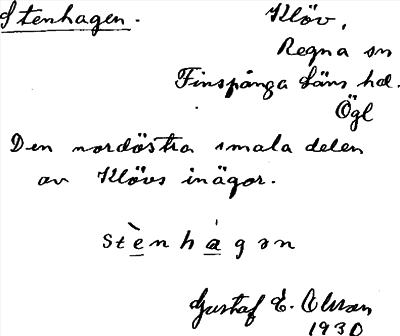 Stenhagen.
Klöv,
Regna sn
Finspånga läns hd.
Ögl
Den nordöstra smala delen
av Klövs inägor.
stènhágən
Gustaf E. Olsson
1930